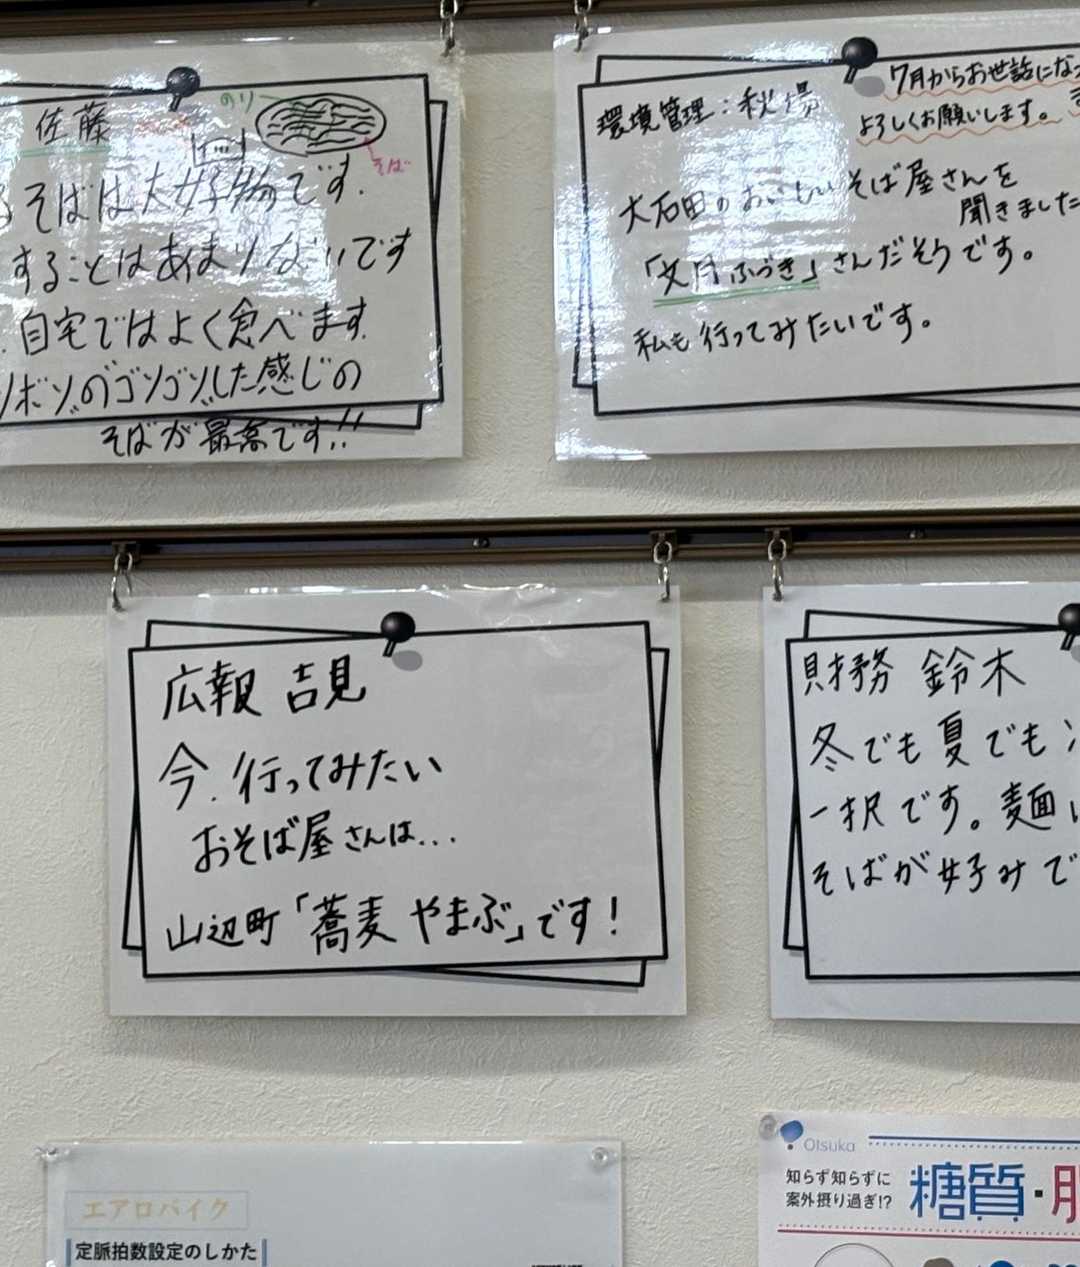 佐藤
のり
そば
そばは大好物です.
することはあまりないです
自宅ではよく食べます.
ボソのゴソゴソした感じの
そばが最高です!!
環境管理:秋場
7月からお世話にな
よろしくお願いします。
大石田のおいしいそば屋さんを
聞きました
「文月ふづき」さんだそうです。
私も行ってみたいです。
広報 吉見
今.行ってみたい
おそば屋さんは...
山辺町「蕎麦 やまぶ」です!
財務 鈴木
冬でも夏でも
一択です。麺
そばが好みで
エアロバイク
定脈拍数設定のしかた
Otsuka
知らず知らずに
案外摂り過ぎ!?
糖質・